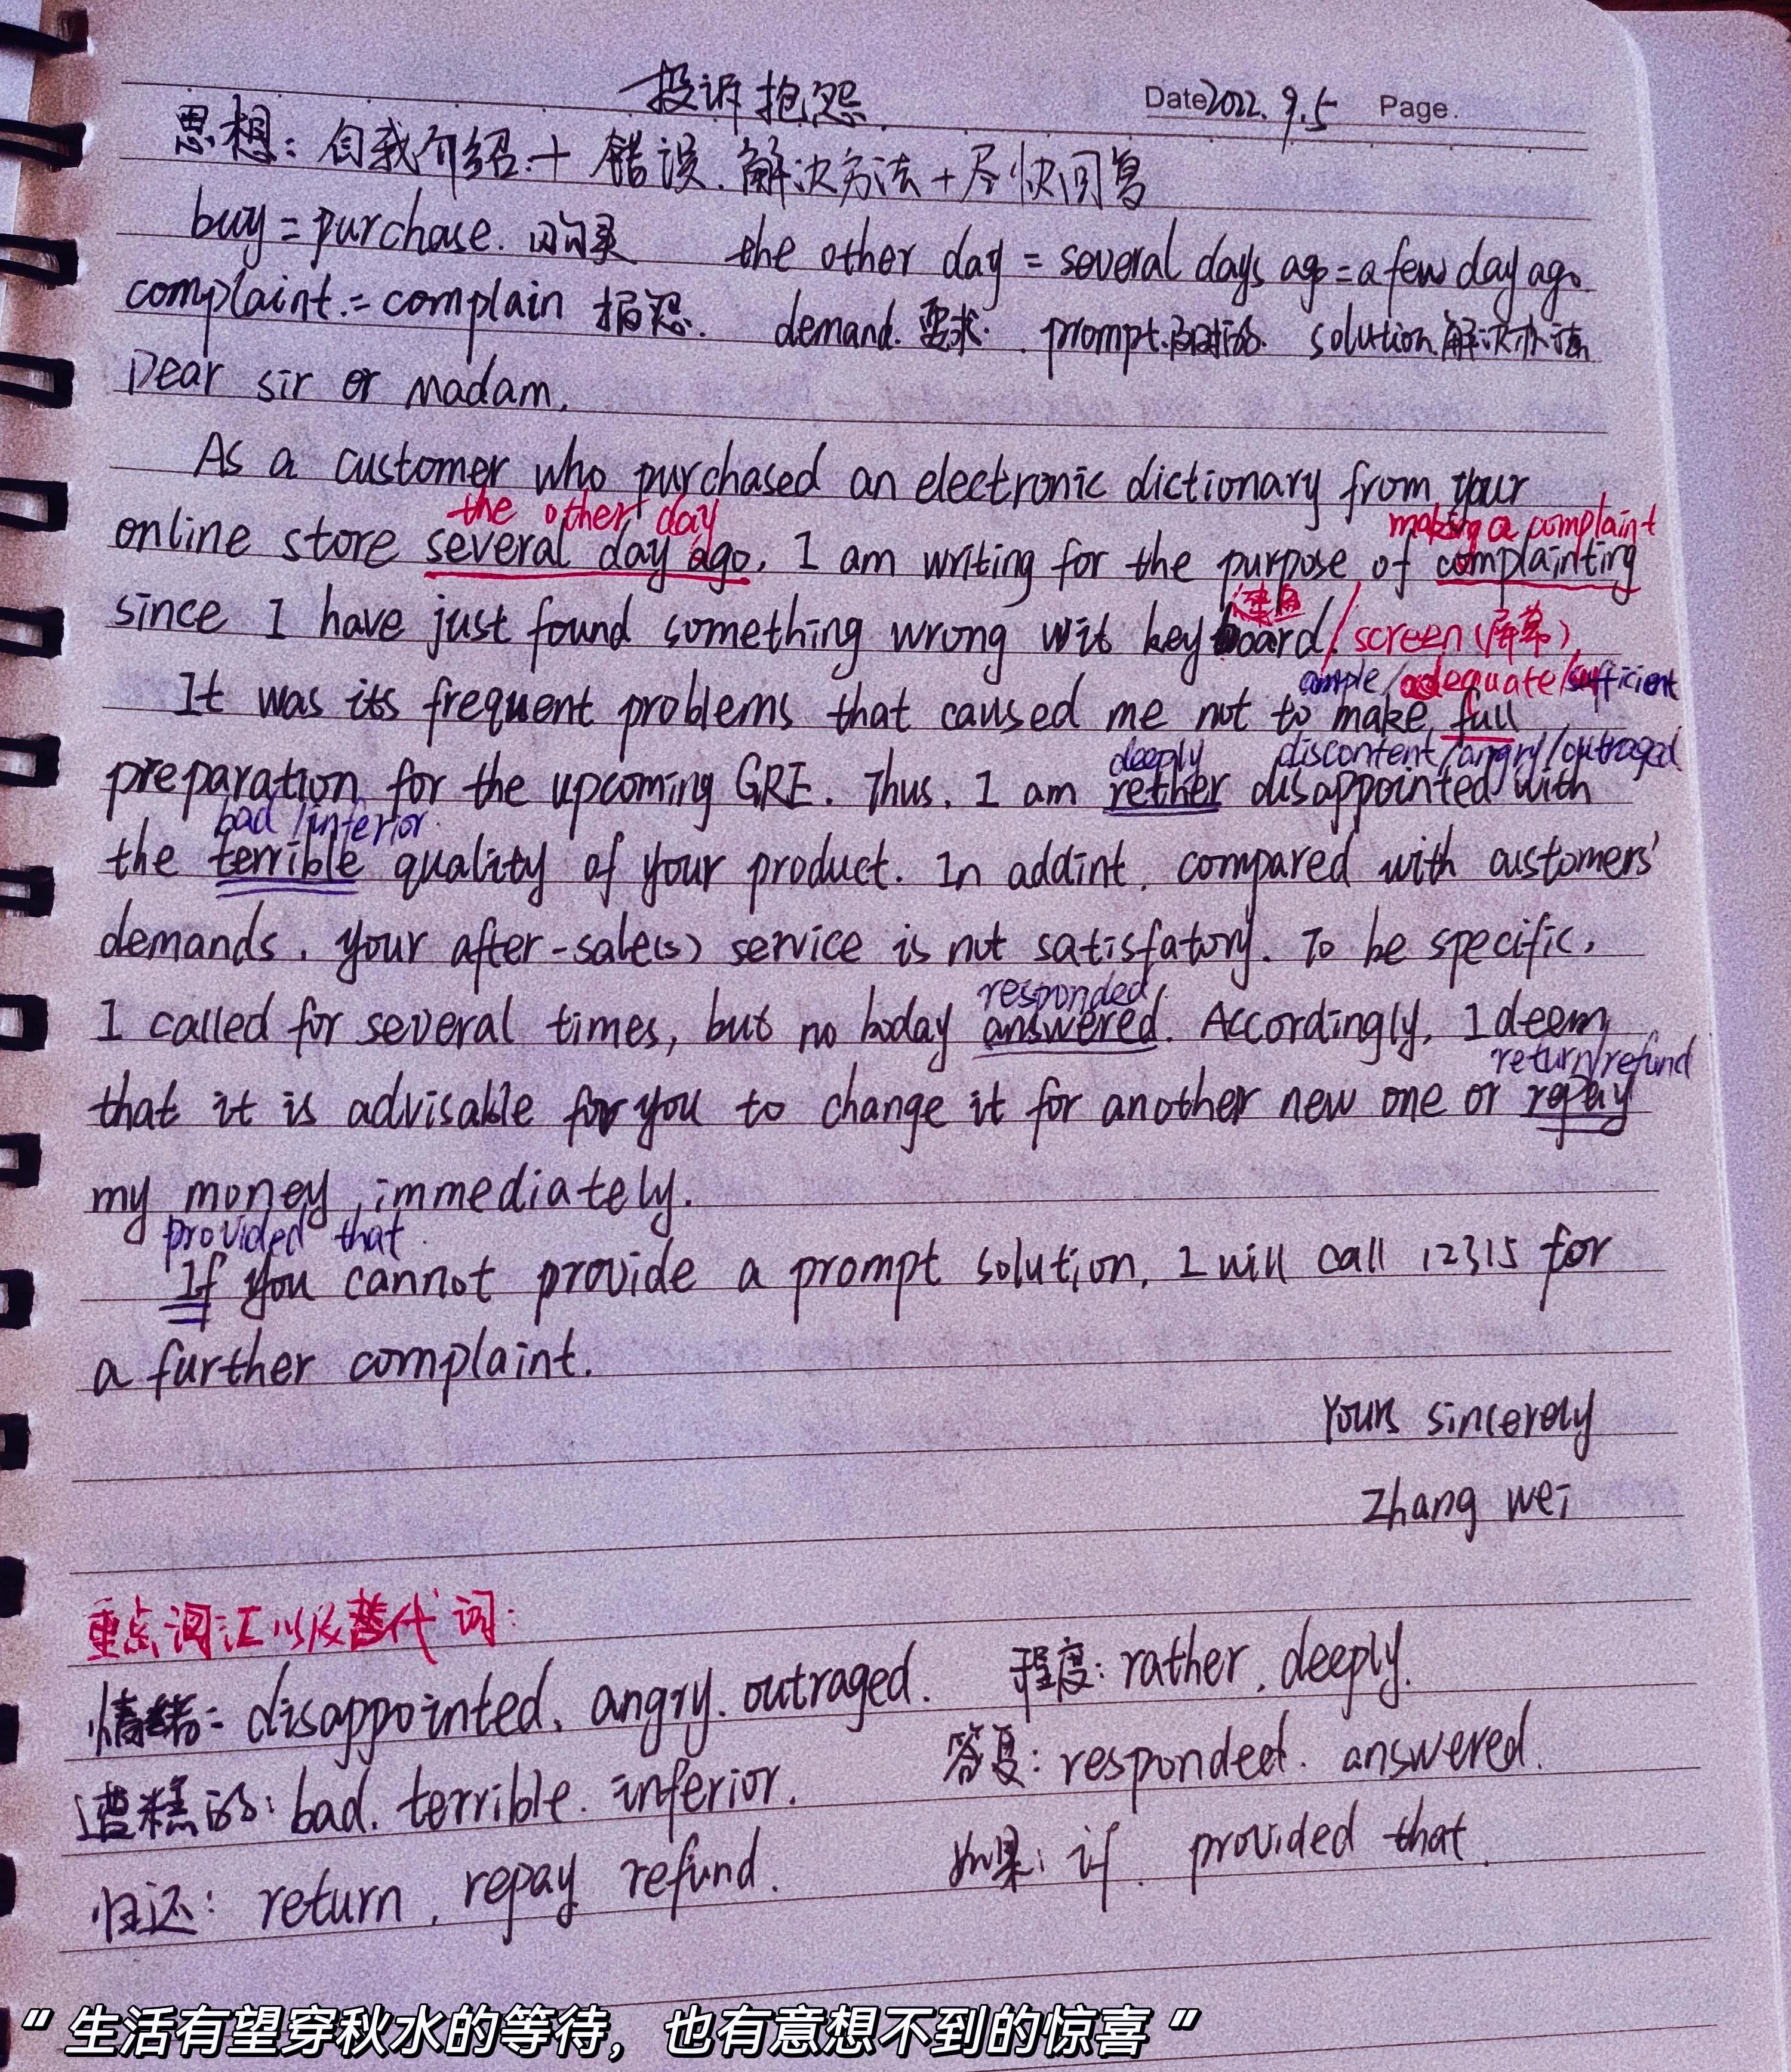 投诉抱怨
Date 2022.9.5 Page.
思想：自我介绍＋错误.解决方法＋尽快回复
buy=purchase.购买 the other day = several days ago=a few day ago.
complaint.=complain 报怨. demand.要求. prompt.及时的. solution.解决办法
Dear sir or Madam,
As a customer who purchased an electronic dictionary from your
the other day making a complaint
online store several day ago, I am writing for the purpose of complainting
键盘
since I have just found something wrong wit keyboard/screen(屏幕),
ample/adequate/sufficient
It was its frequent problems that caused me not to make full
deeply discontent/angry/outraged
preparation for the upcoming GRE. Thus, I am rether disappointed with
bad/inferior
the terrible quality of your product. In addint, compared with customers'
demands, your after-sale(s) service is not satisfatory. To be specific,
responded
I called for several times, but no boday answered. Accordingly, I deem
return/refund
that it is advisable for you to change it for another new one or repay
my money immediately.
provided that
If you cannot provide a prompt solution, I will call 12315 for
a further complaint.
Yours sincerely
Zhang Wei
重点词汇以及替代词：
情绪：disappointed, angry, outraged. 程度：rather, deeply.
糟糕的：bad. terrible. inferior. 答复：responded. answered.
归还：return, repay refund. 如果：if. provided that
“生活有望穿秋水的等待，也有意想不到的惊喜”